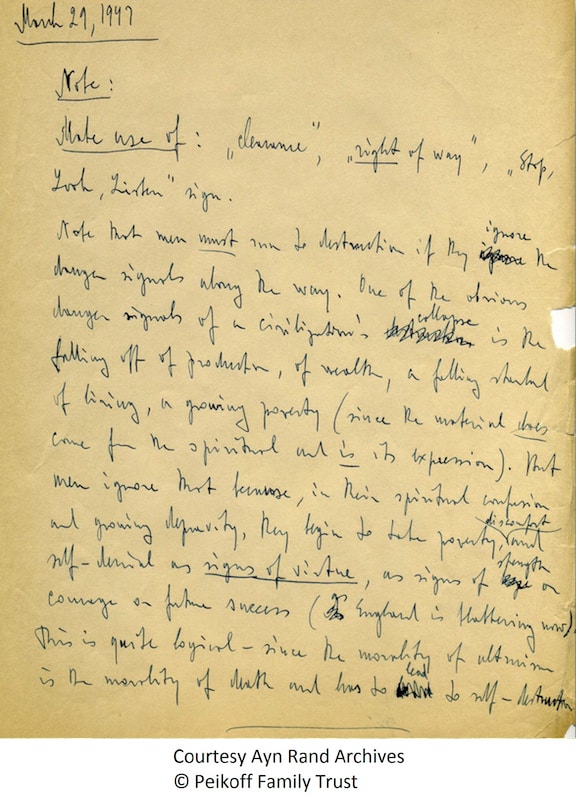 March 29, 1947
Note:
Make use of: „clearance”, „right of way”, „Stop,
Look, Listen” sign.
Note that men must run to destruction if they ignore the
danger signals along the way. One of the obvious
danger signals of a civilization's collapse is the
falling off of production, of wealth, a falling standard
of living, a growing poverty (since the material does
come from the spiritual and is its expression). But
men ignore that because, in their spiritual confusion
and growing depravity, they begin to take poverty, discomfort and
self-denial as signs of virtue, as signs of strength or
courage or future success ( England is flattering now).
This is quite logical – since the morality of altruism
is the morality of death and has to lead to self-destruction
Courtesy Ayn Rand Archives
© Peikoff Family Trust